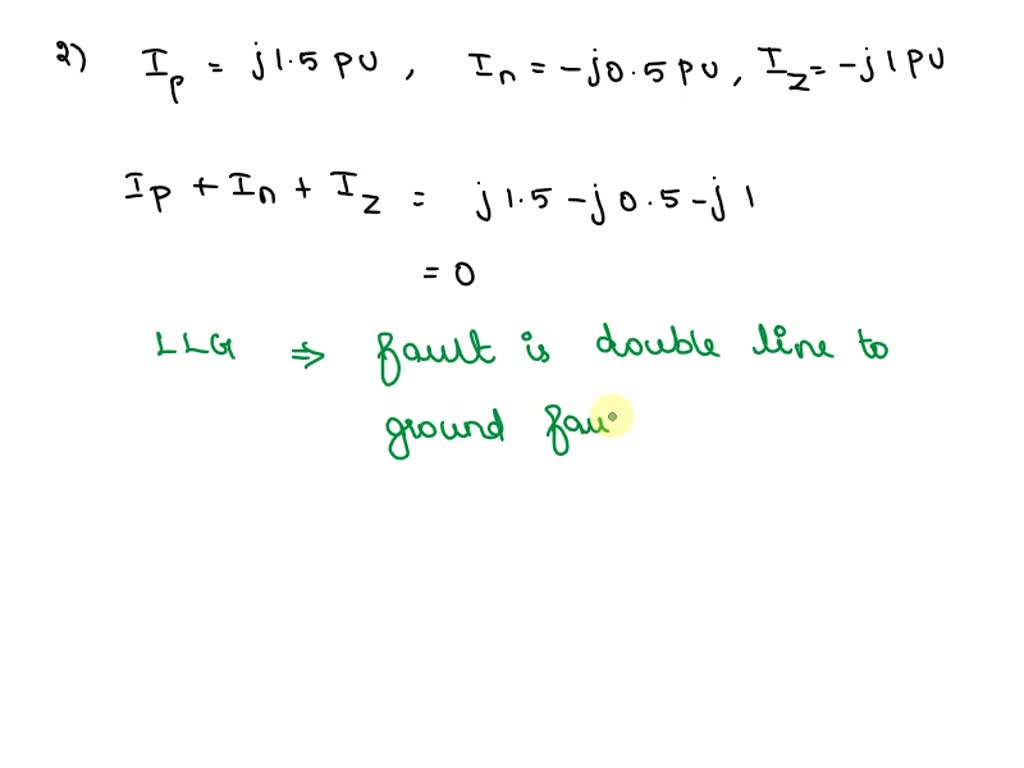 2) Ip = j1.5 PU, In = -j0.5 PU, Iz = -j1PU
Ip + In + Iz = j1.5 - j0.5 - j1
= 0
LLG ⇒ fault is double line to
ground fau